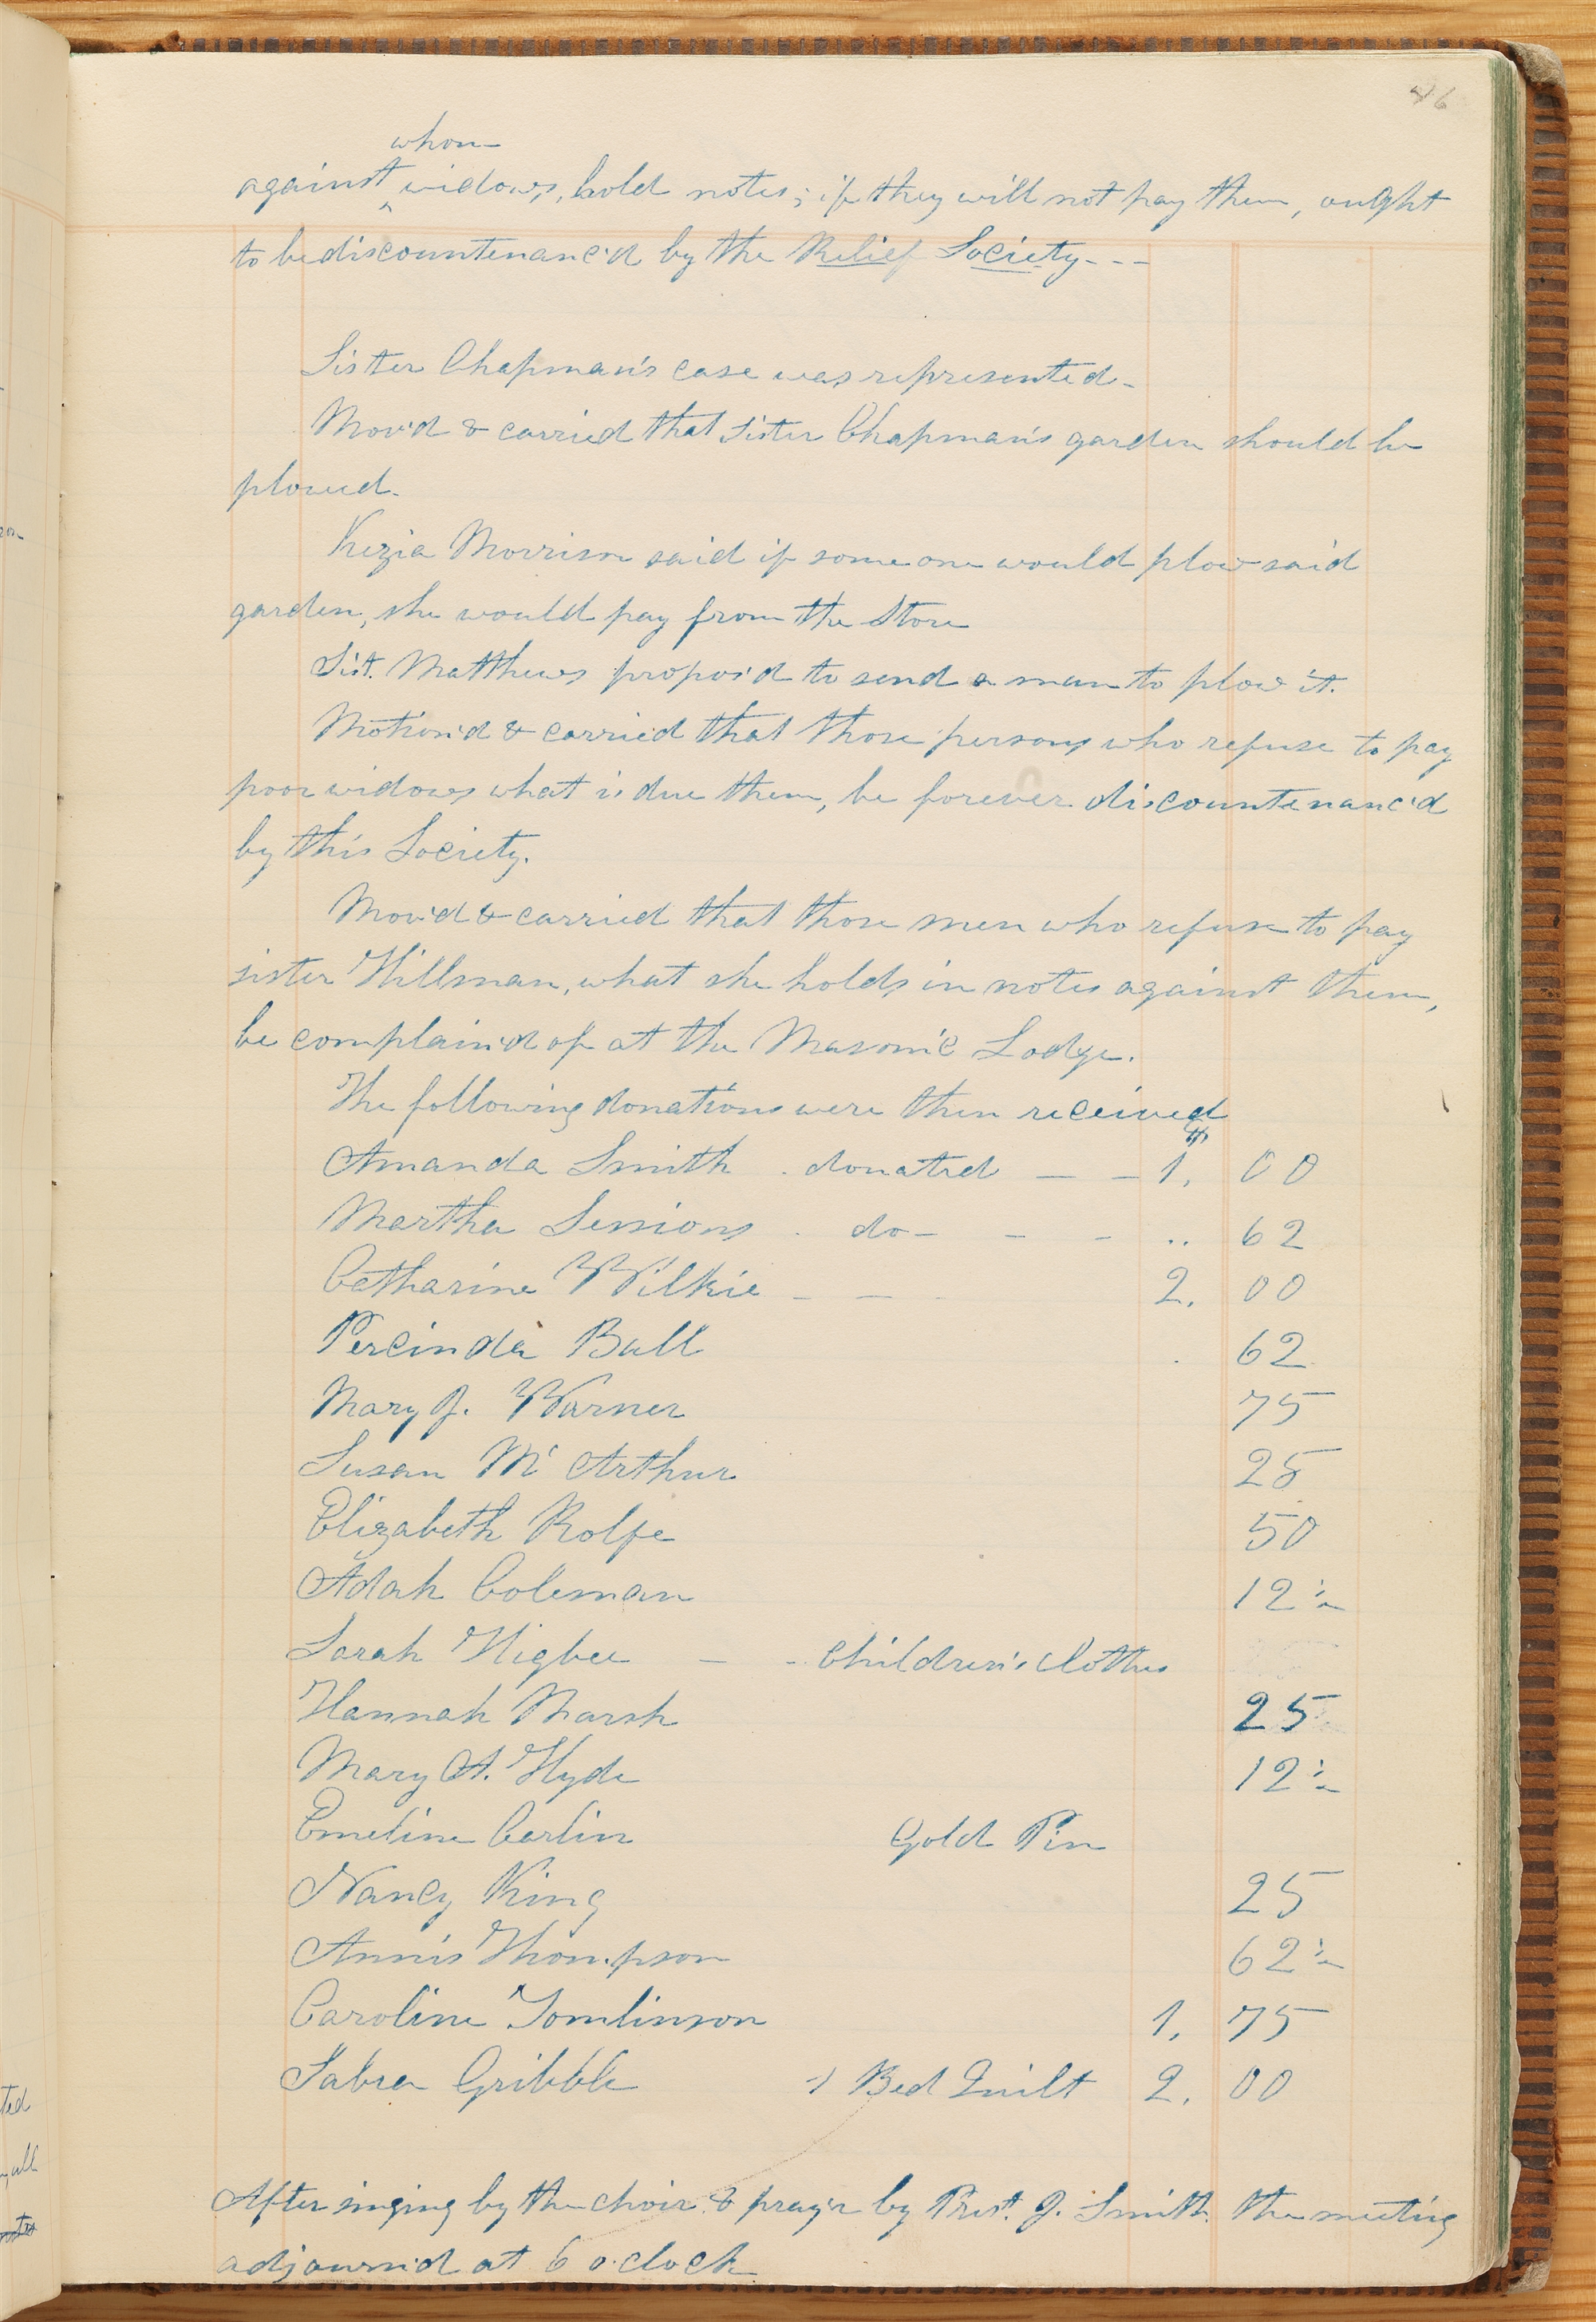 46
whom
against ‸ widows, hold notes; if they will not pay them, ought
to be discountenanc'd by the Relief Society---
Sister Chapman's case was represented-
Mov'd & carried that Sister Chapman's garden should be
plowed.
Kezia Morrison said if some one would plow said
garden, she would pay from the Store
Sist. Matthews propos'd to send a man to plow it.
Motion'd & carried that those persons who refuse to pay
poor widows what is due them, be forever discountenanc'd
by this Society.
Mov'd & carried that those men who refuse to pay
sister Hillman, what she holds in notes against them,
be complain'd of at the Masonic Lodge.
The following donations were then received
Amanda Smith . donated — — $1, 00
Martha Sessions . do - - - .. 62
Catharine Wilkie - — - 2, 00
Percinda Ball . 62
Mary J. Warner 75
Susan Mc Arthur 25
Elizabeth Rolfe 50
Adah Coleman 12½
Sarah Higbee — - Children's clothes
Hannah Marsh 25
Mary A. Hyde 12½
Emeline Carlin Gold Pin
Nancy King 25
Annis Thompson 62½
Caroline Tomlinson 1, 75
Sabra Gribble 1 Bed Quilt 2, 00
After singing by the choir & pray'r by Prest. J. Smith. the meeting
adjourn'd at 6 o.clock